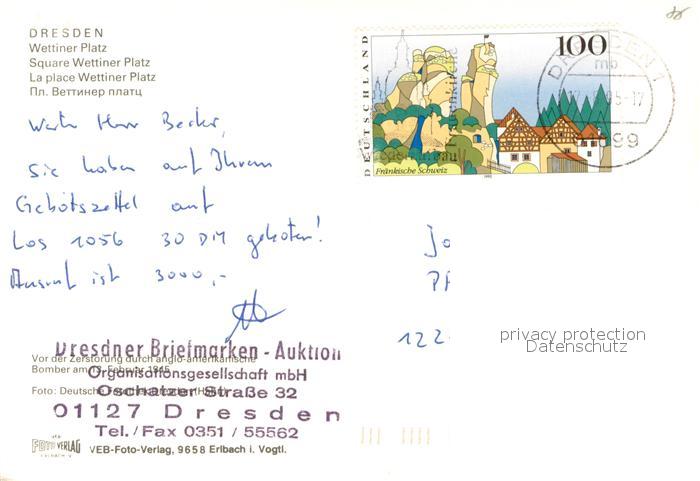 DRESDEN
Wettiner Platz
Square Wettiner Platz
La place Wettiner Platz
Пл. Веттинер платц
Werter Herr Becker,
Sie haben auf Ihrem
Gebotszettel auf
Los 1056 30 DM geboten!
Ausruf ist 3000,-
DEUTSCHLAND
100
Fränkische Schweiz
DRESDEN 1
mb
-17
99
122
privacy protection
Datenschutz
Vor der Zerstörung durch anglo-amerikanische
Bomber am 13. Februar 1945
Foto: Deutsche Fotothek Dresden
Dresdner Briefmarken - Auktion
Organisationsgesellschaft mbH
Oschatzer Straße 32
01127 Dresden
Tel./Fax 0351 / 55562
VEB
FOTO VERLAG
ERLBACH V.
VEB-Foto-Verlag, 9658 Erlbach i. Vogtl.